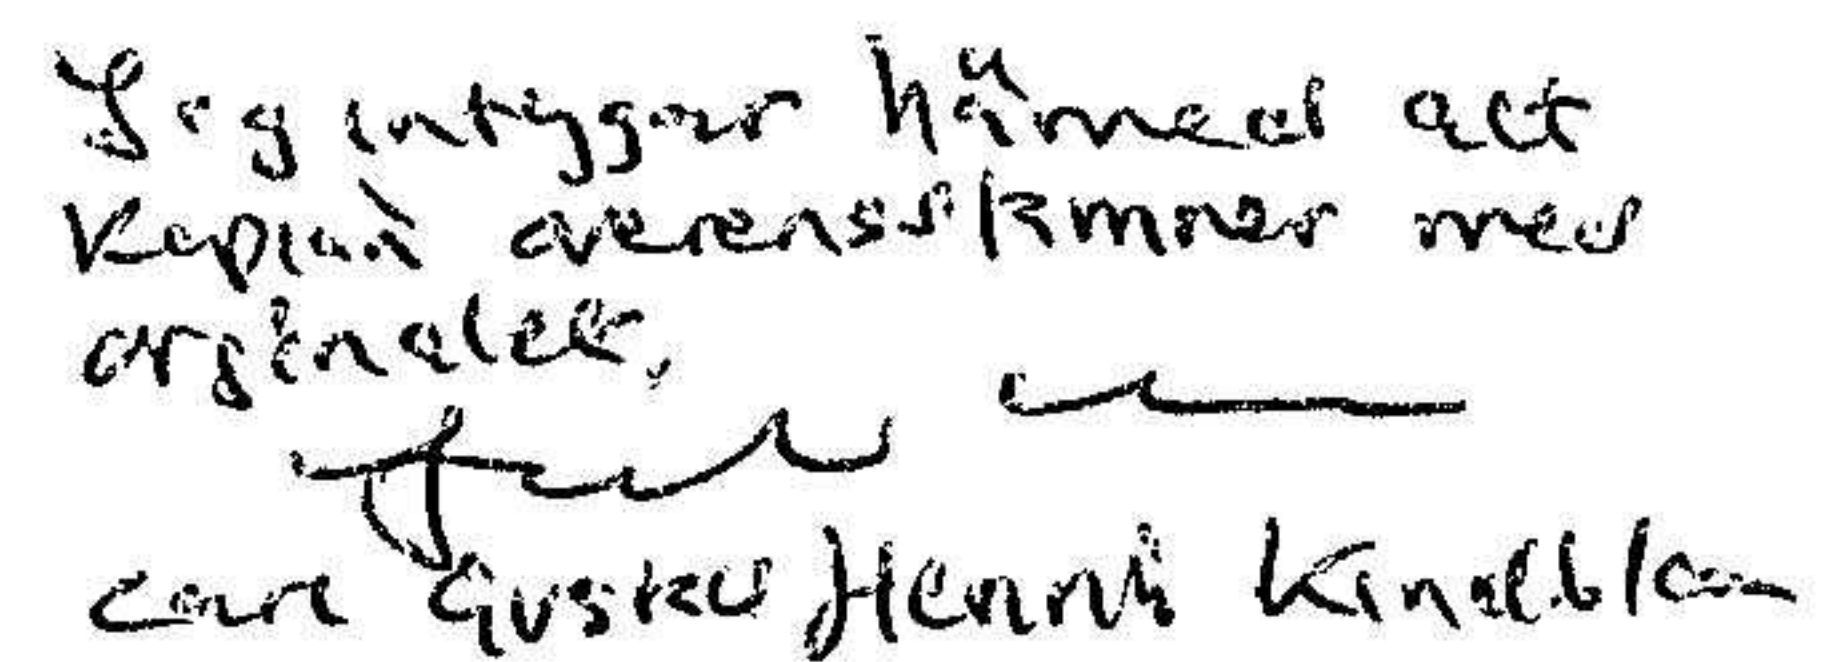 Jag intygar härmed att
kopian överensskmmer med
orginalet,
Carl Gustav Henrik Kindblom